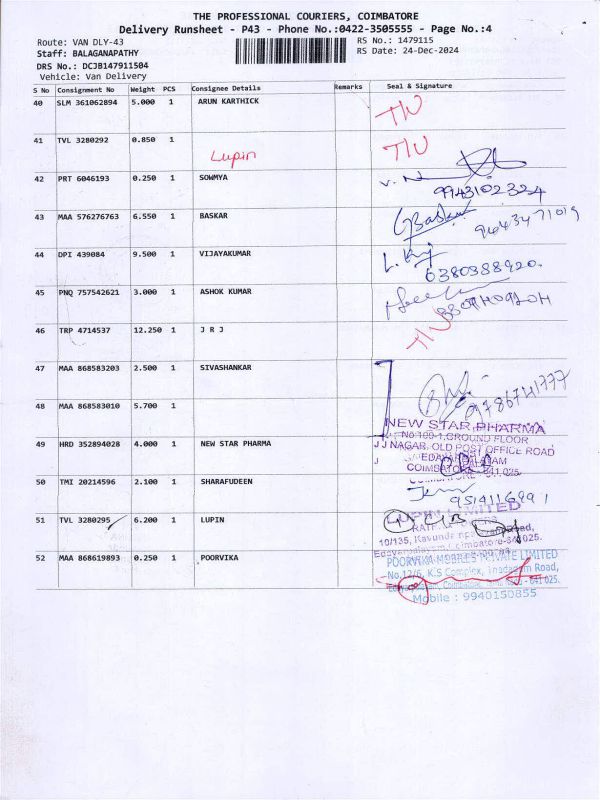 THE PROFESSIONAL COURIERS, COIMBATORE
Delivery Runsheet - P43 - Phone No.:0422-3505555 - Page No.:4
Route: VAN DLY-43
RS No.: 1479115
Staff: BALAGANAPATHY
RS Date: 24-Dec-2024
DRS No.: DCJB147911504
Vehicle: Van Delivery
S No Consignment No Weight PCS Consignee Details Remarks Seal & Signature
40 SLM 361062894 5.000 1 ARUN KARTHICK
41 TVL 3280292 0.850 1
Lupin
42 PRT 6046193 0.250 1 SOWMYA
9943102324
43 MAA 576276763 6.550 1 BASKAR
GBaskar
9443471019
44 DPI 439084 9.500 1 VIJAYAKUMAR
6380388920.
45 PNQ 757542621 3.000 1 ASHOK KUMAR
46 TRP 4714537 12.250 1 J R J
47 MAA 868583203 2.500 1 SIVASHANKAR
9786741777
48 MAA 868583010 5.700 1
NEW STAR PHARMA
No:109-1,GROUND FLOOR
49 HRD 352894028 4.000 1 NEW STAR PHARMA
J J NAGAR, OLD POST OFFICE ROAD
COIMBATORE - 641 025.
50 TMI 20214596 2.100 1 SHARAFUDEEN
51 TVL 3280295 6.200 1 LUPIN
LUPIN LIMITED
52 MAA 868619893 0.250 1 POORVIKA
POORVIKA MOBILES PRIVATE LIMITED
No.12/6, K.S Complex, Thadagam Road,
Mobile : 9940150855